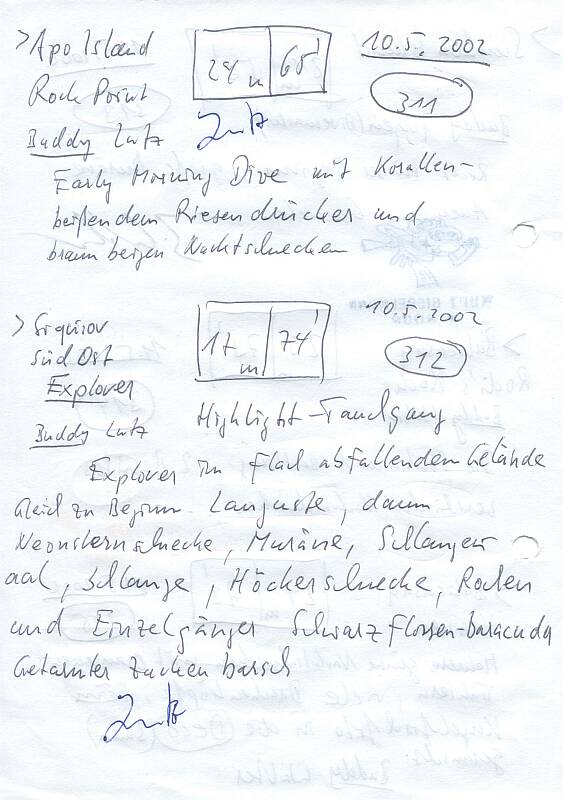 > Apo Island
24 m 65'
10.5.2002
Rock Point
311
Buddy Lutz
Lutz
Early Morning Dive mit Korallen-
beißendem Riesendrücker und
braun beigen Nachtschnecken
> Siquijor
17 m 74'
10.5.2002
Süd Ost
312
Explorer
Buddy Lutz
Highlight-Tauchgang
Explorer im flach abfallenden Gelände
Gleich zu Beginn Languste, dann
Neonsternschnecke, Muräne, Schlangen
aal, Schlange, Höckerschnecke, Rochen
und Einzelgänger Schwarzflossen-baracuda
Getarnter Zackenbarsch
Lutz